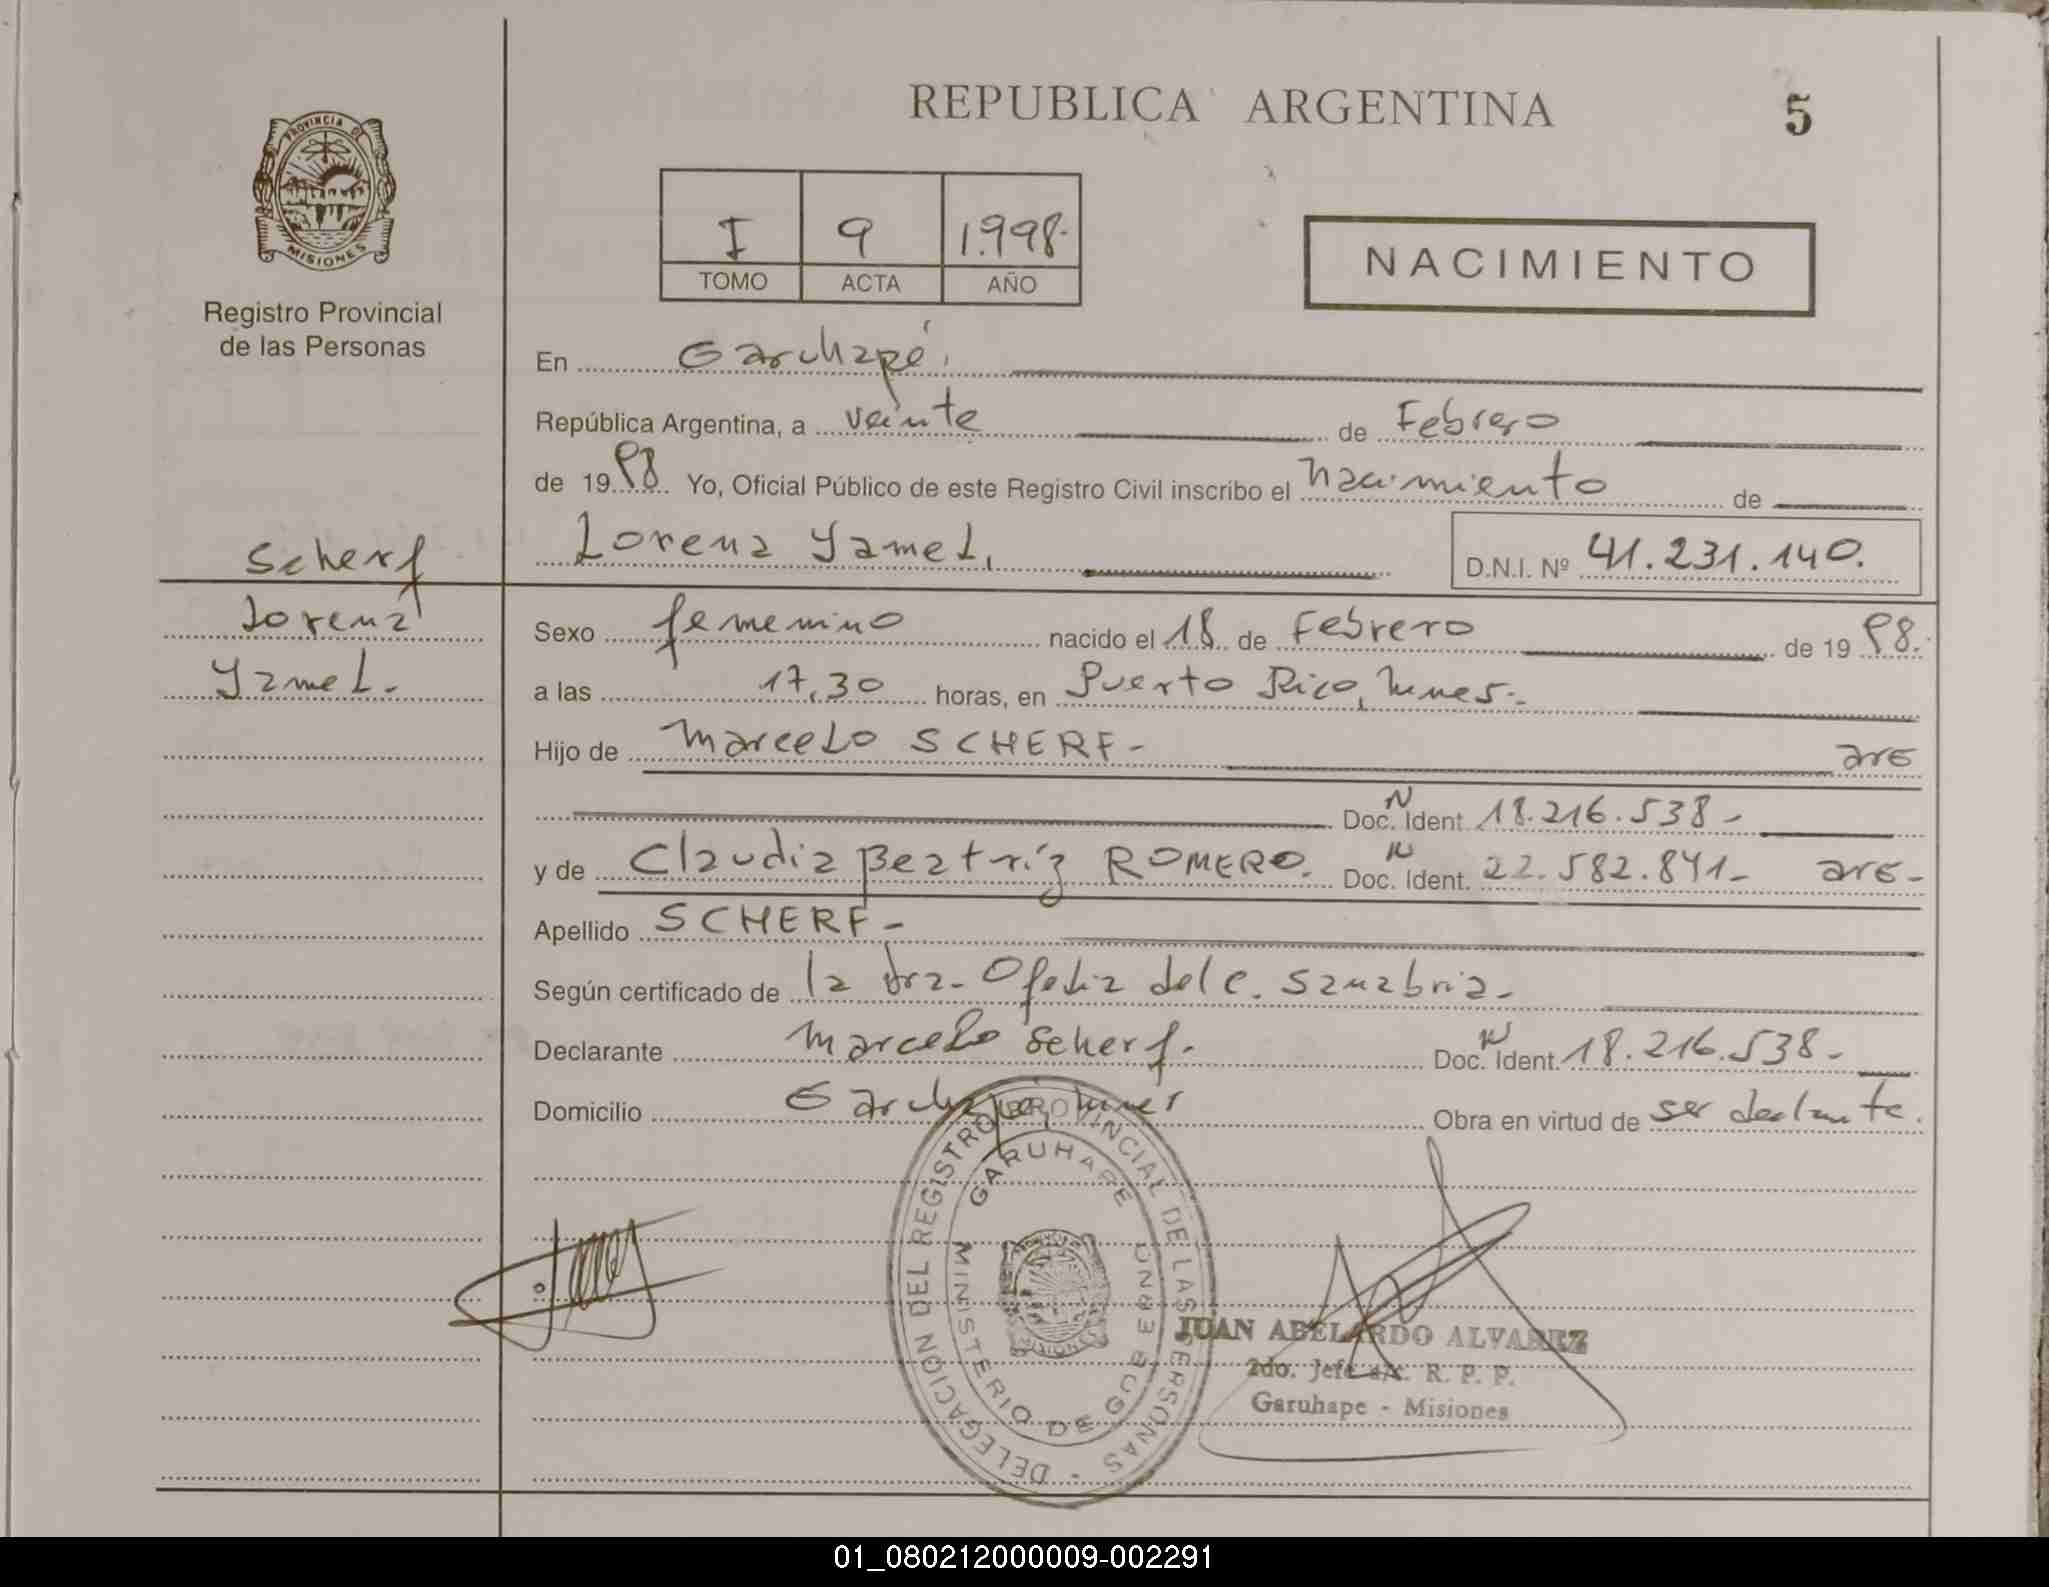 REPUBLICA ARGENTINA
5
PROVINCIA DE
MISIONES
Registro Provincial
de las Personas
I 9 1.998.-
TOMO ACTA AÑO
NACIMIENTO
En Garuhapé,
República Argentina, a veinte de Febrero
de 1998 Yo, Oficial Público de este Registro Civil inscribo el nacimiento de
Lorena Yamel, D.N.I. Nº 41.231.140.
Scherf
Lorena
Yamel.-
Sexo femenino nacido el 18 de Febrero de 1998.
a las 17,30 horas, en Puerto Rico, Mnes.-
Hijo de Marcelo SCHERF- arg
Doc. N Ident. 18.216.538-
y de Claudia Beatríz ROMERO. Doc. N Ident. 22.582.841- arg-
Apellido SCHERF-
Según certificado de la Dra. Ofelia del C. Sanabria-
Declarante Marcelo Scherf. Doc. N Ident. 18.216.538-
Domicilio Garuhapé, Mnes Obra en virtud de ser declante.
DELEGACION DEL REGISTRO PROVINCIAL DE LAS PERSONAS -
GARUHAPE
MINISTERIO DE GOB
JUAN ABELARDO ALVAREZ
2do. Jefe a/c. R. P. P.
Garuhape - Misiones
01_080212000009-002291